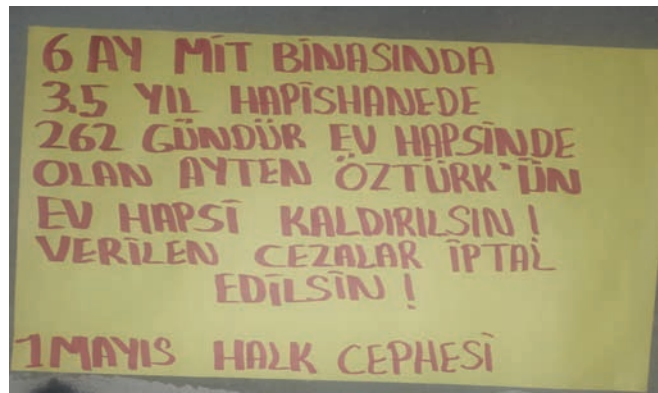 6 AY MİT BİNASINDA
3.5 YIL HAPİSHANEDE
262 GÜNDÜR EV HAPSİNDE
OLAN AYTEN ÖZTÜRK'ÜN
EV HAPSİ KALDIRILSIN!
VERİLEN CEZALAR İPTAL
EDİLSİN!
1 MAYIS HALK CEPHESİ